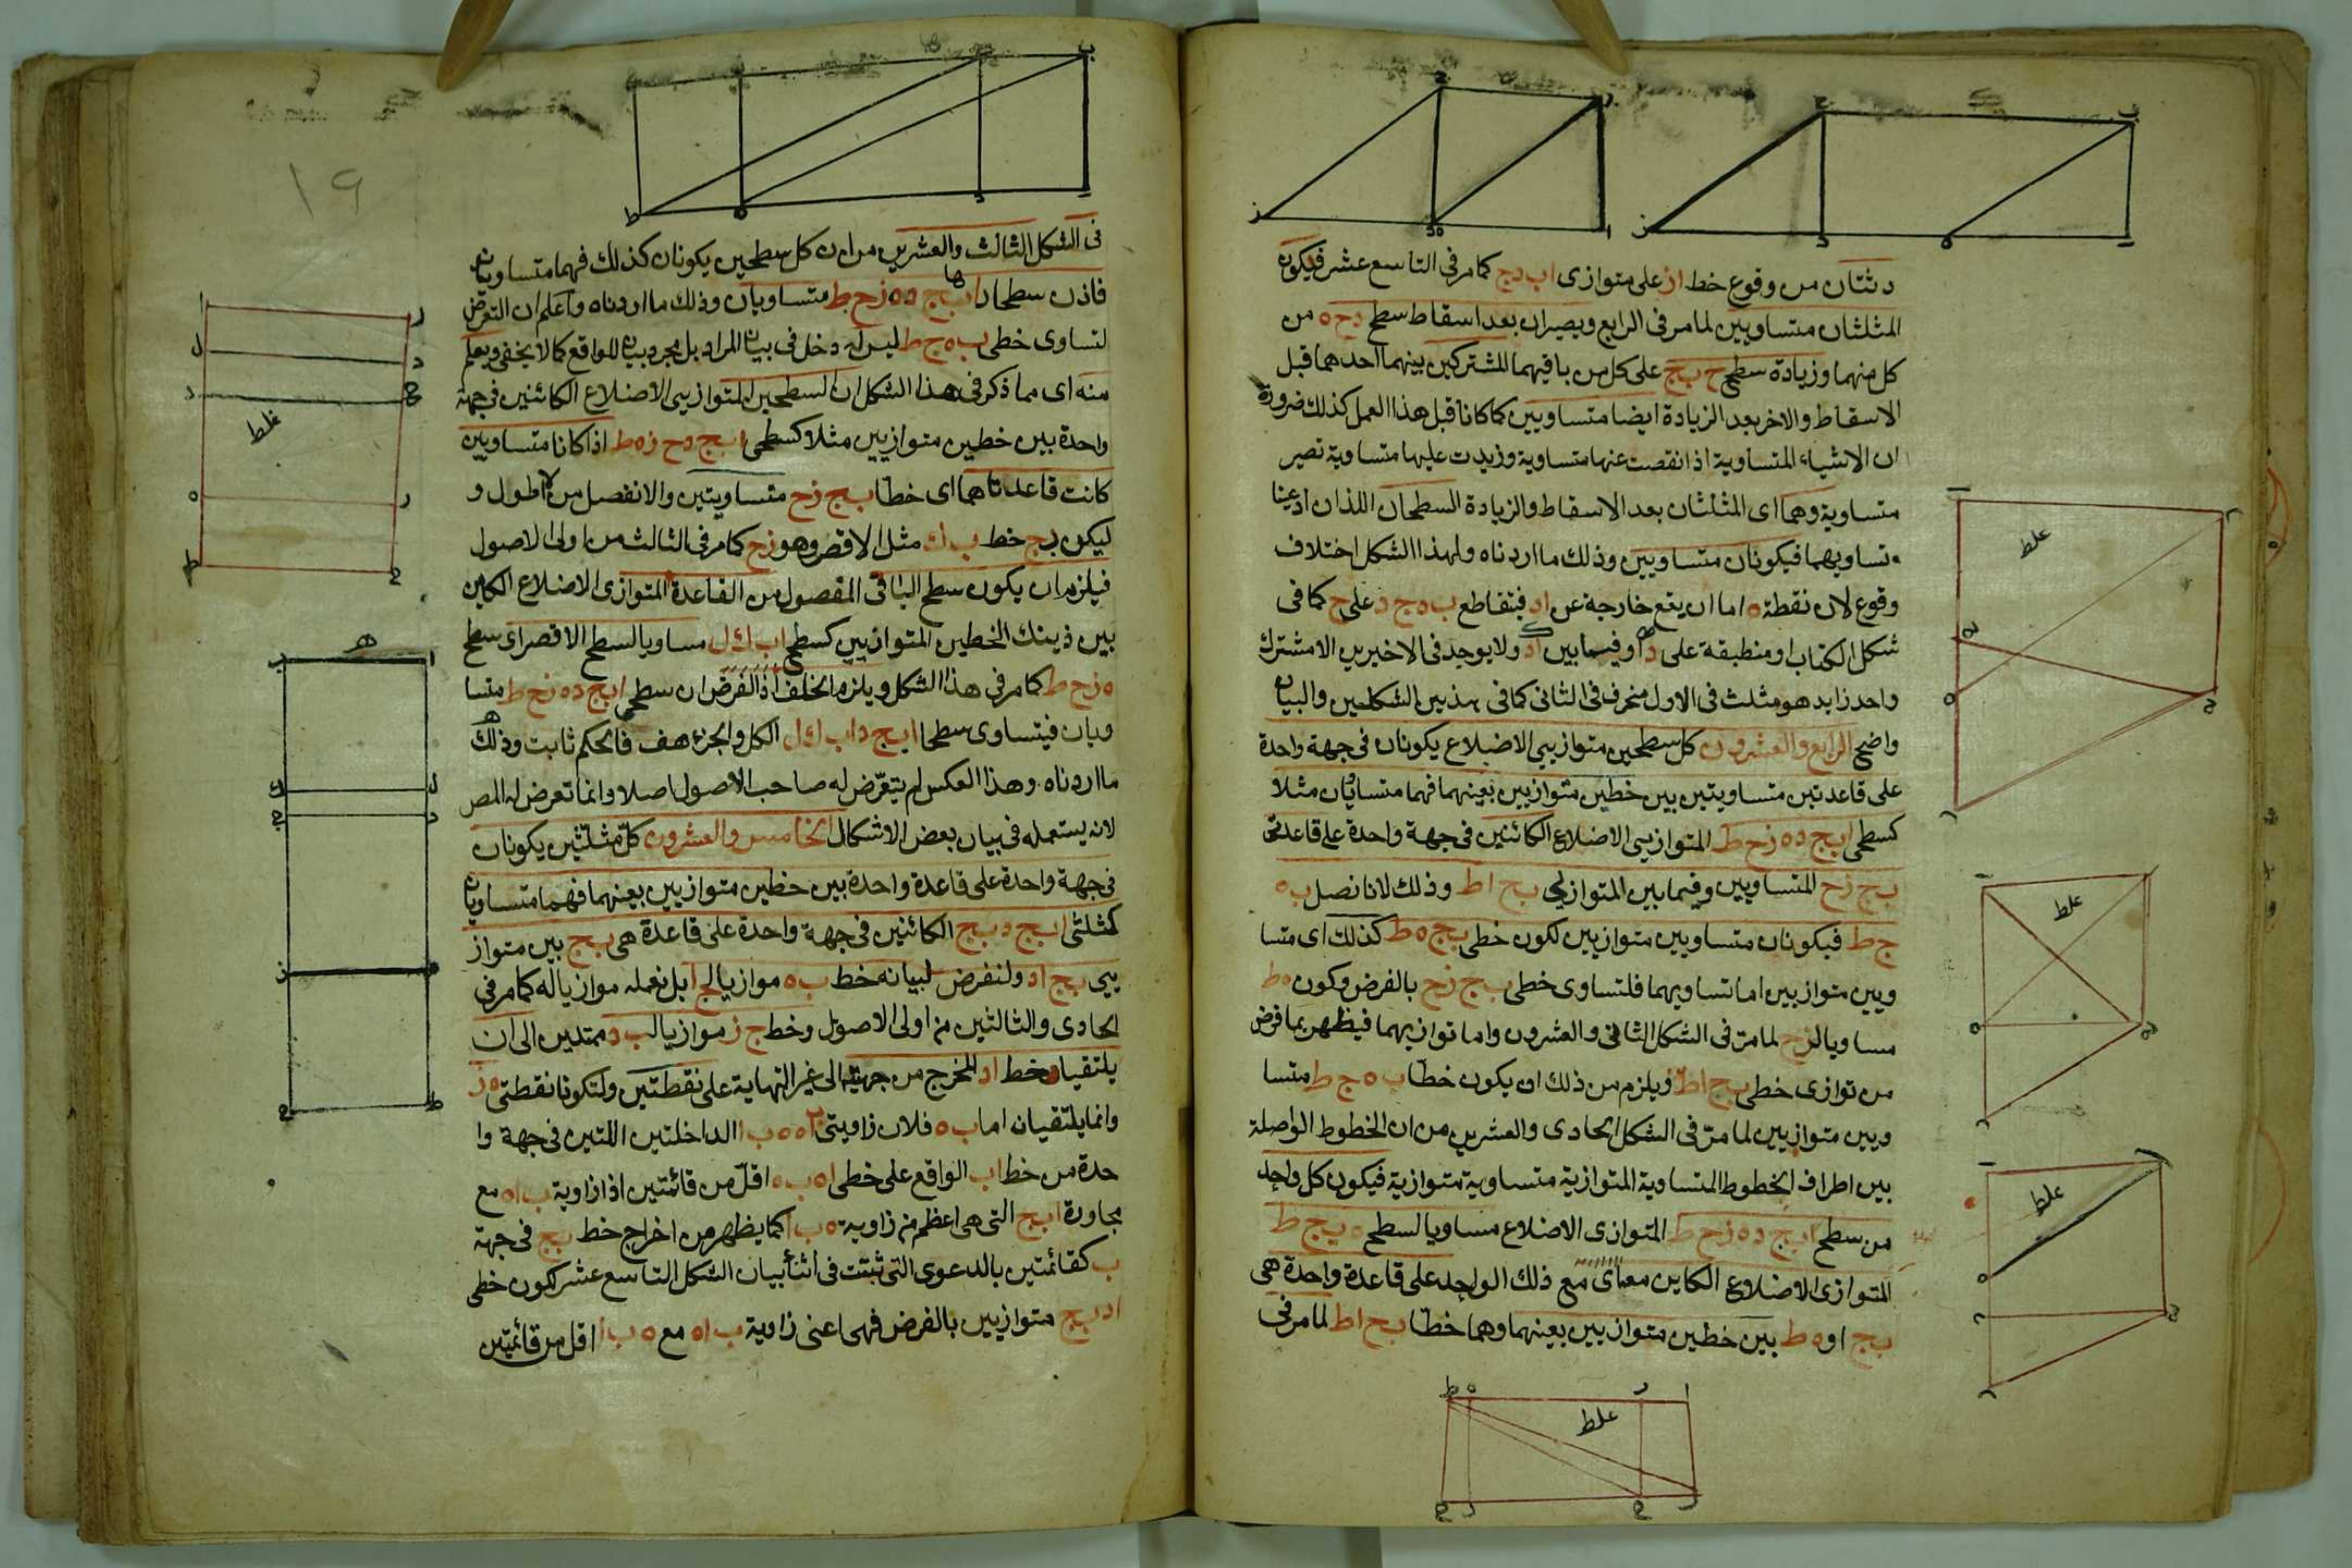 دثتان من وقوع خط از على متوازى اب دج كما مر فى التاسع عشر فيكون
المثلثان متساويين لما مر فى الرابع ويصيران بعد اسقاط سطح دح ه من
كل منهما وزيادة سطح ح ب ج على كل من باقيهما المشتركين بينهما احدهما قبل
الاسقاط والاخر بعد الزيادة ايضا متساويين كما كانا قبل هذا العمل كذلك ضرورة
ان الاشياء المتساوية اذا نقصت عنها متساوية وزيدت عليها متساوية تصير
متساوية وهما اى المثلثان بعد الاسقاط والزيادة السطحان اللذان ادعينا
تساويهما فيكونان متساويين وذلك ما اردناه ولهذا الشكل اختلاف
وقوع لان نقطة ه اما ان يقع خارجة عن اد فيتقاطع ب ه ج د على ح كما فى
شكل الكتاب او منطبقة على د او فيما بين اد ولا يوجد فى الاخيرين الا مشترك
واحد زايد هو مثلث فى الاول منحرف فى الثانى كما فى هذين الشكلين والبيان
واضح الرابع والعشرون كل سطحين متوازيى الاضلاع يكونان فى جهة واحدة
على قاعدتين متساويتين بين خطين متوازيين بعينهما فهما متساويان مثلا
كسطحى ابج د ه زح ط المتوازيى الاضلاع الكائنين فى جهة واحدة على قاعدتى
بج زح المتساويين وفيما بين المتوازيى بح اط وذلك لانا نصل ب ه
ج ط فيكونان متساويين متوازيين لكون خطى بج ه ط كذلك اى متسا
ويين متوازيين اما تساويهما فلتساوى خطى بج زح بالفرض وكون ه ط
مساويا لزح لما مر فى الشكل الثانى والعشرون واما توازيهما فيظهر بما فرض
من توازى خطى بح اط ويلزم من ذلك ان يكون خطا ب ه ج ط متسا
ويين متوازيين لما مر فى الشكل الحادى والعشرين من ان الخطوط الواصلة
بين اطراف الخطوط المتساوية المتوازية متساوية متوازية فيكون كل واحد
من سطح ابج د ه زح ط المتوازى الاضلاع مساويا لسطح ه بج ط
المتوازى الاضلاع الكاين مع ذلك الواحد على قاعدة واحدة هى
بج او ه ط بين خطين متوازيين بعينهما وهما خطا بح اط لما مر فى
غلط
غلط
غلط
غلط
١٩
فى الشكل الثالث والعشرين من ان كل سطحين يكونان كذلك فهما متساويان
فاذن سطحا ابج د ه زح ط متساويان وذلك ما اردناه واعلم ان التعرض
لتساوى خطى ب ه ج ط ليس له دخل فى بيان المراد بل مجرد بيان للواقع كما لا يخفى ويعلم
منه اى مما ذكر فى هذا الشكل ان السطحين المتوازيى الاضلاع الكائنين فى جهة
واحدة بين خطين متوازيين مثلا كسطحى ابج دح زه ط اذا كانا متساويين
كانت قاعدتاهما اى خطا بج زح متساويتين والا نفصل من الاطول و
ليكن بج خط ب ك مثل الاقصر وهو زح كما مر فى الثالث من اولى الاصول
فيلزم ان يكون سطح الباقى المفصول من القاعدة المتوازى الاضلاع الكاين
بين ذينك الخطين المتوازيين كسطح اب ك ل مساويا لسطح الاقصر اى سطح
ه زح ط كما مر فى هذا الشكل ويلزم الخلف اذ الفرض ان سطحى ابج د ه زح ط متسا
ويان فيتساوى سطحا ابج د اب ك ل الكل والجزء هف فالحكم ثابت وذلك
ما اردناه وهذا العكس لم يتعرض له صاحب الاصول اصلا وانما تعرض له المص
لانه يستعمله فى بيان بعض الاشكال الخامس والعشرون كل مثلثين يكونان
فى جهة واحدة على قاعدة واحدة بين خطين متوازيين بعينهما فهما متساويان
كمثلثى ابج د بج الكائنين فى جهة واحدة على قاعدة هى بج بين متواز
يى بج اد ولنفرض لبيانه خط ب ه موازيا لج ا بل نعمله موازيا له كما مر فى
الحادى والثالثين من اولى الاصول وخط ج ز موازيا لب د ممتدين الى ان
يلتقيا بخط اد المخرج من جهتيه الى غير النهاية على نقطتين ولتكونا نقطتى ه ز
وانما يلتقيان اما ب ه فلان زاويتى ب ا ه ه ب ا الداخلتين اللتين فى جهة وا
حدة من خط اب الواقع على خطى اه ب ه اقل من قائمتين اذ زاوية ب اه مع
مجاورة ابج التى هى اعظم من زاوية ه ب ا كما يظهر من اخراج خط بج فى جهة
ب كقائمتين بالدعوى التى ثبتت فى اثناء بيان الشكل التاسع عشر لكون خطى
اد بج متوازيين بالفرض فهى اعنى زاوية ب اه مع ه ب ا اقل من قائمتين
غلط